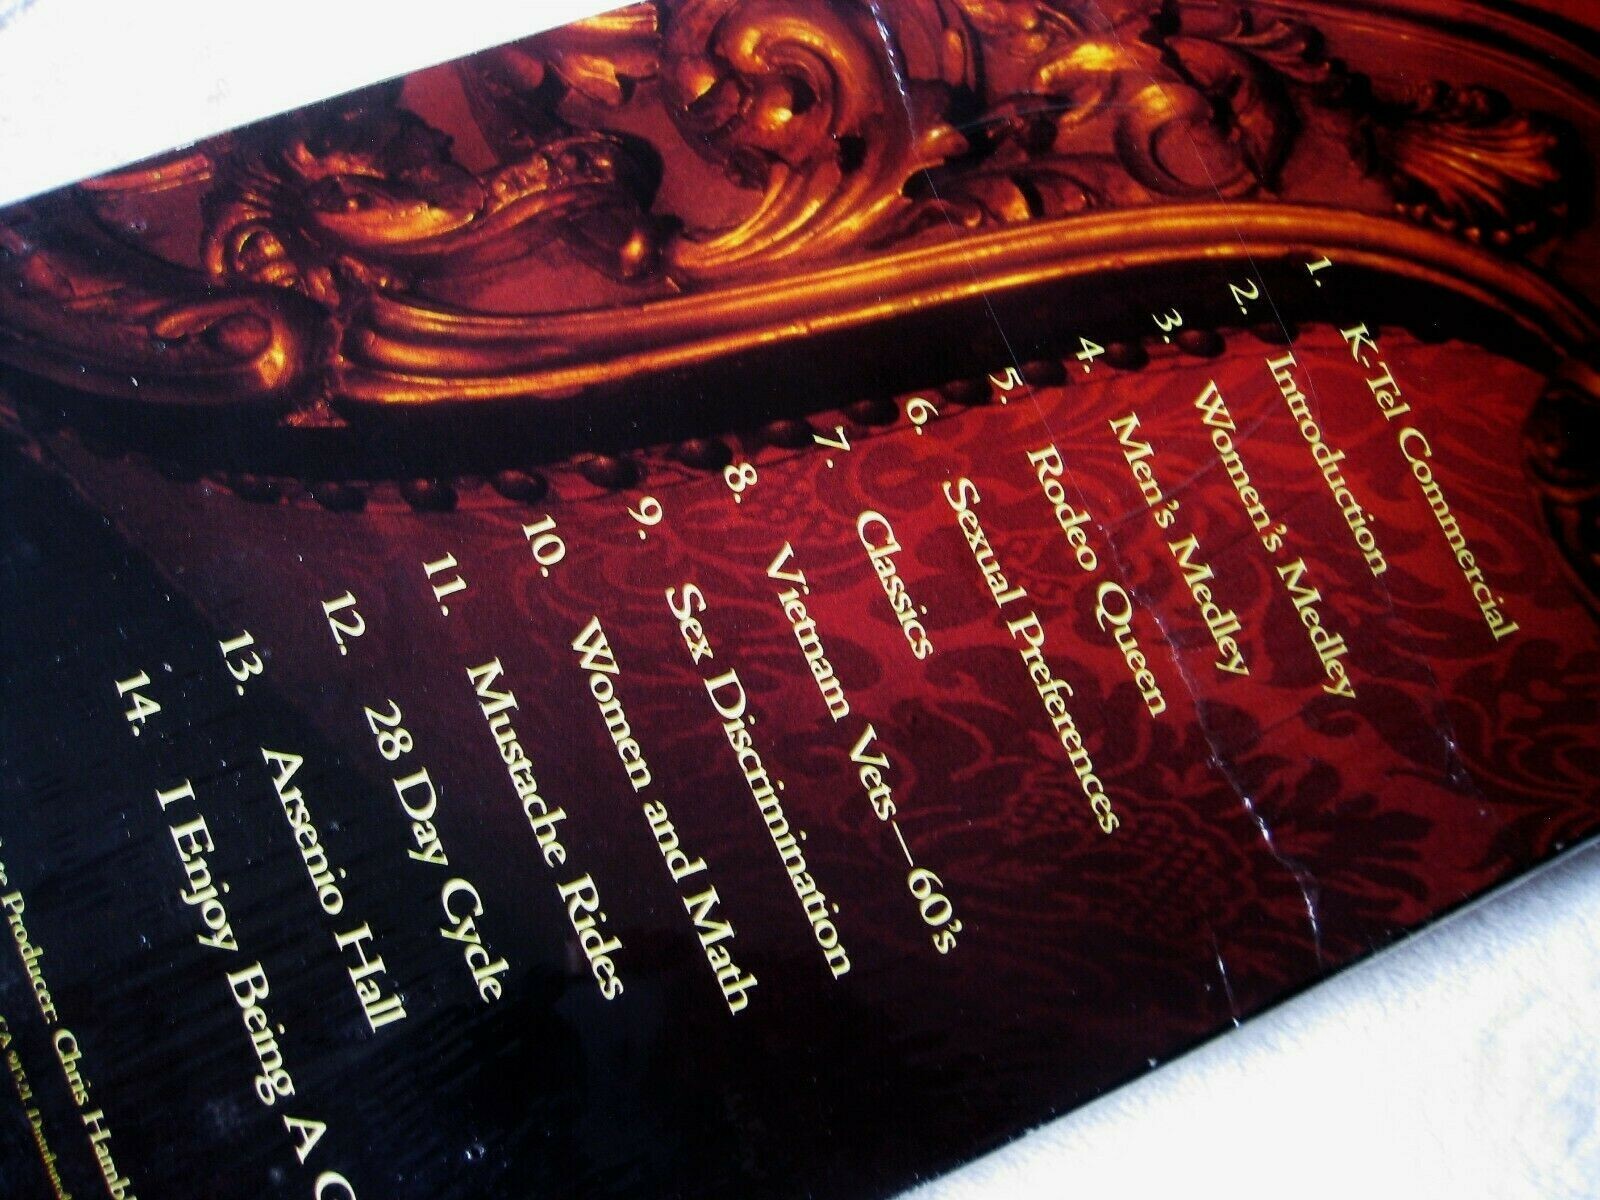 1. K-Tel Commercial
2. Introduction
3. Women's Medley
4. Men's Medley
5. Rodeo Queen
6. Sexual Preferences
7. Classics
8. Vietnam Vets—60's
9. Sex Discrimination
10. Women and Math
11. Mustache Rides
12. 28 Day Cycle
13. Arsenio Hall
14. I Enjoy Being A
Producer: Chris
CA 91324